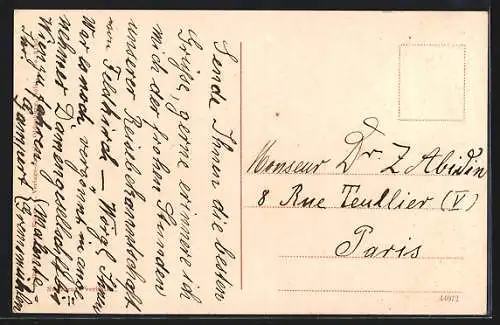 Sende Ihnen die besten
Grüsse, gerne erinnere ich
mich der frohen Stunden
unserer Reisebekanntschaft
von Feldkirch — Wörgl. Ihnen
war es noch vergönnt in ange-
nehmer Damengesellschaft bis
Wien zu fahren.
Ihr
Monsieur Dr Z Abidin
8 Rue Teullier (V)
Paris
44972